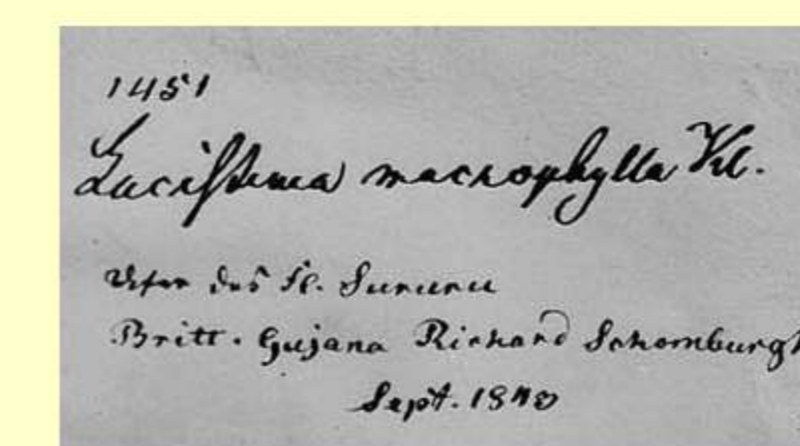 1451
Lacistema macrophylla Kl.
Ufer des Fl. Sururu
Britt. Gujana Richard
Sept.